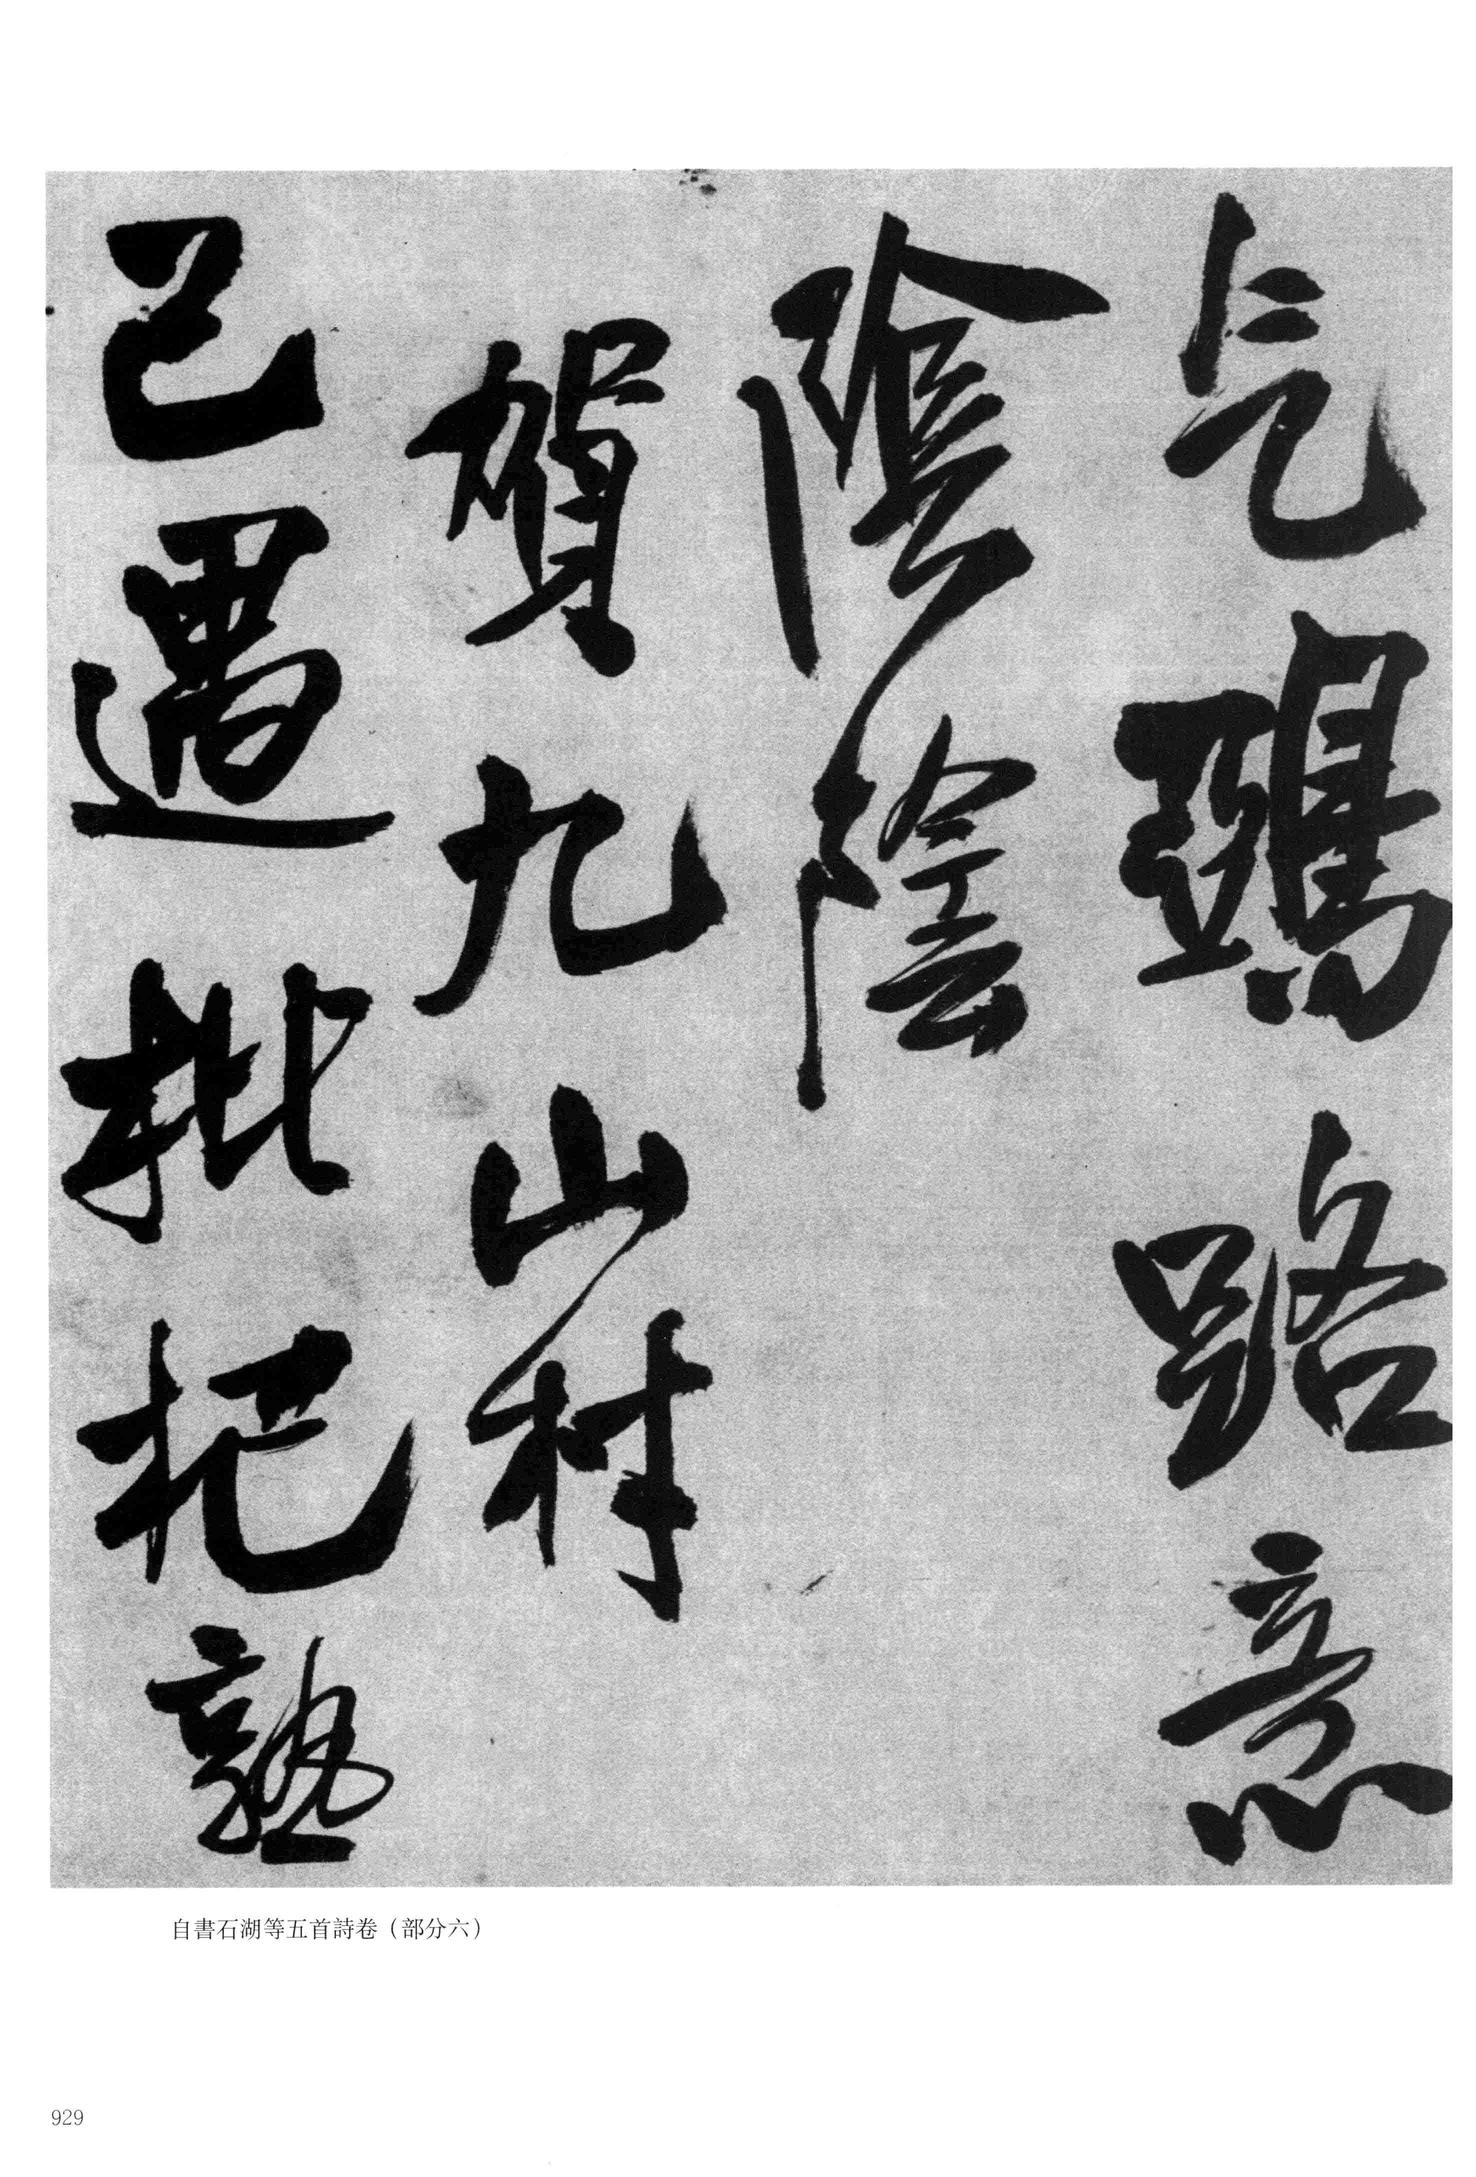 乞鵶路意
陰陰
賀九山村
已遇枇杷熟
自書石湖等五首詩卷（部分六）
929